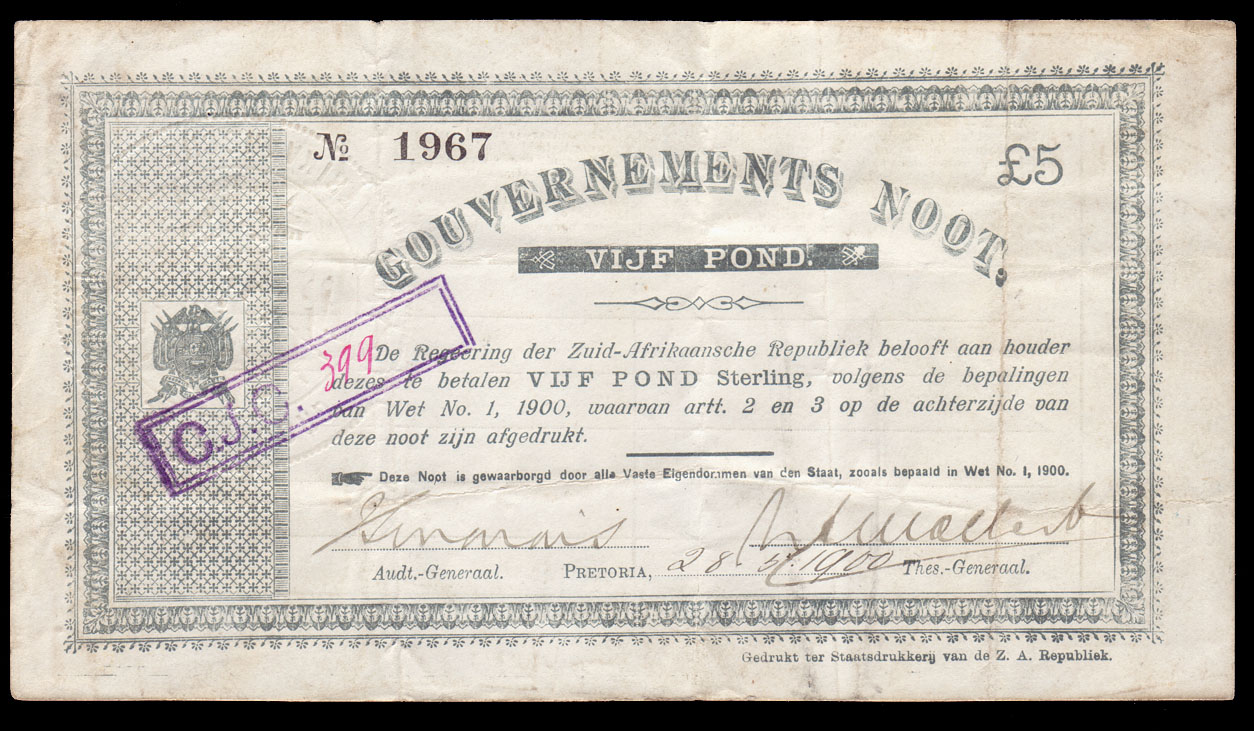 № 1967
£5
GOUVERNEMENTS NOOT.
VIJF POND.
C.J.C. 399
De Regeering der Zuid-Afrikaansche Republiek belooft aan houder
dezes te betalen VIJF POND Sterling, volgens de bepalingen
van Wet No. 1, 1900, waarvan artt. 2 en 3 op de achterzijde van
deze noot zijn afgedrukt.
Deze Noot is gewaarborgd door alle Vaste Eigendommen van den Staat, zooals bepaald in Wet No. 1, 1900.
Audt.-Generaal. PRETORIA, 28 5/1900 Thes.-Generaal.
Gedrukt ter Staatsdrukkerij van de Z. A. Republiek.